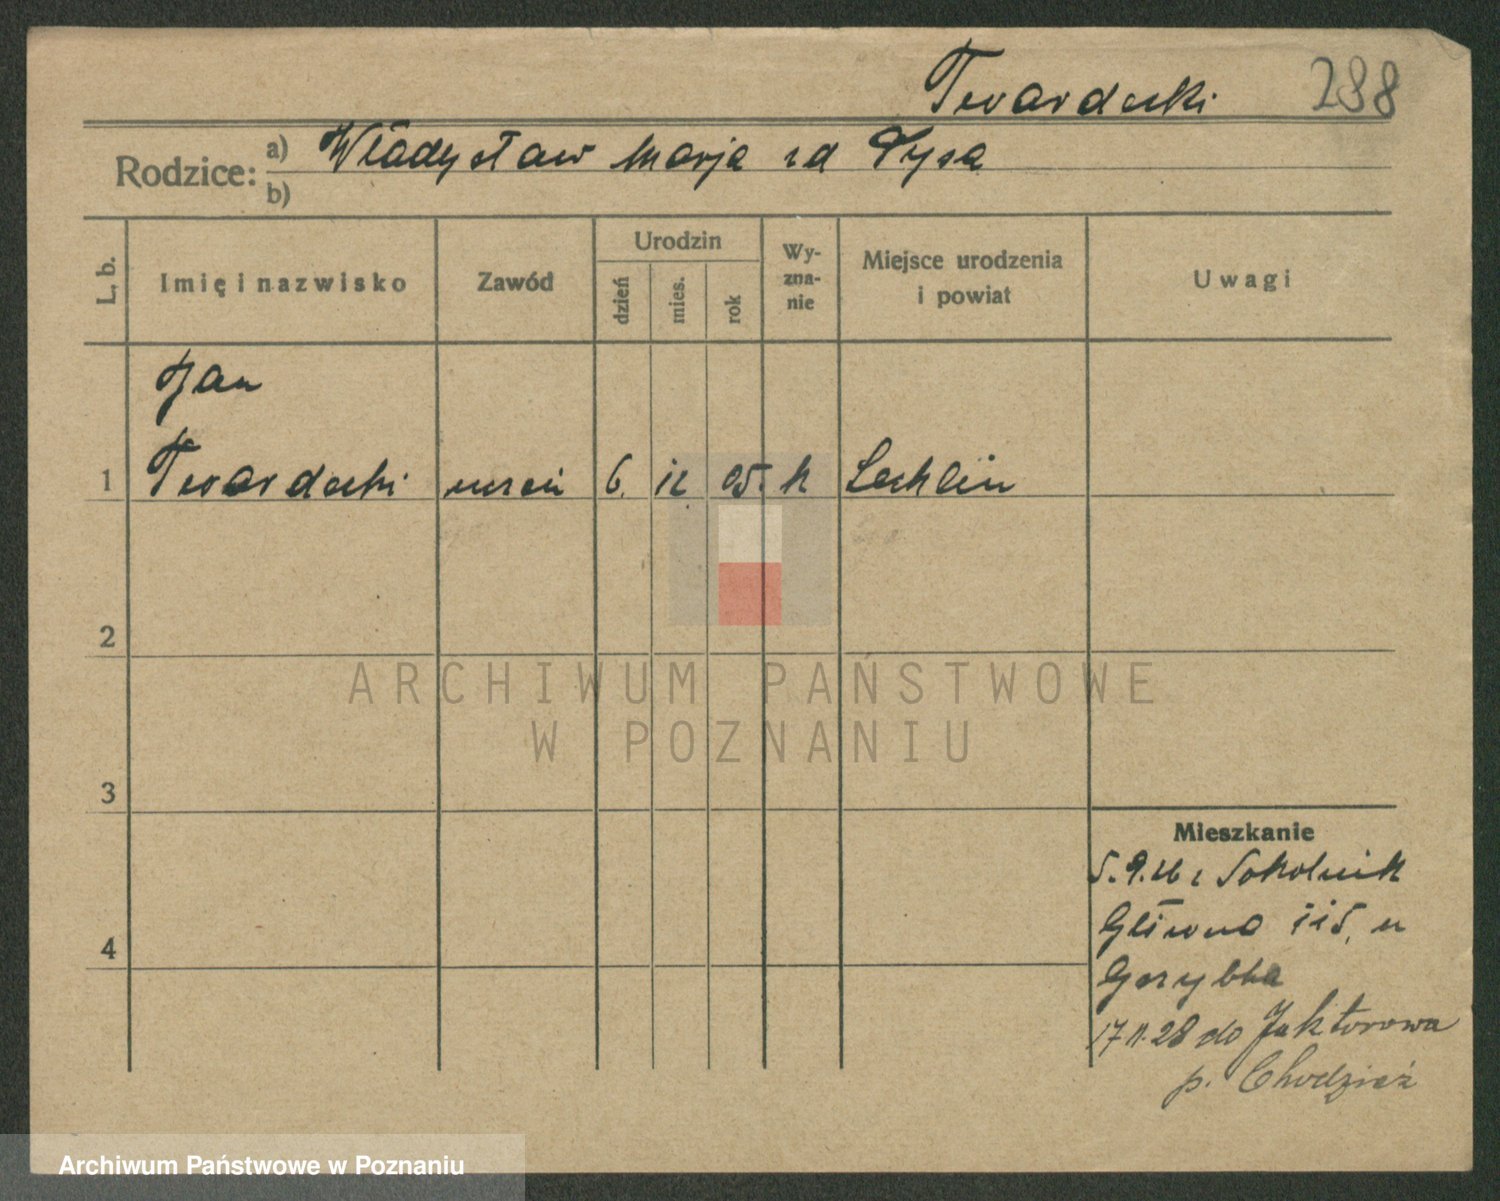 Twardecki 288
Rodzice: a) Władysław Marja z d Pysa
b)
L. b. Imię i nazwisko Zawód Urodzin dzień mies. rok Wy-zna-nie Miejsce urodzenia i powiat Uwagi
Jan
1 Twardecki uczeń 6. 12 05. k Lechlin
2
3
4
Mieszkanie
5.9.26 z Sokolnik
Główna 115, u
Grzybka
17 11.28 do Jaktorowa
p. Chodzież
ARCHIWUM PAŃSTWOWE
W POZNANIU
Archiwum Państwowe w Poznaniu